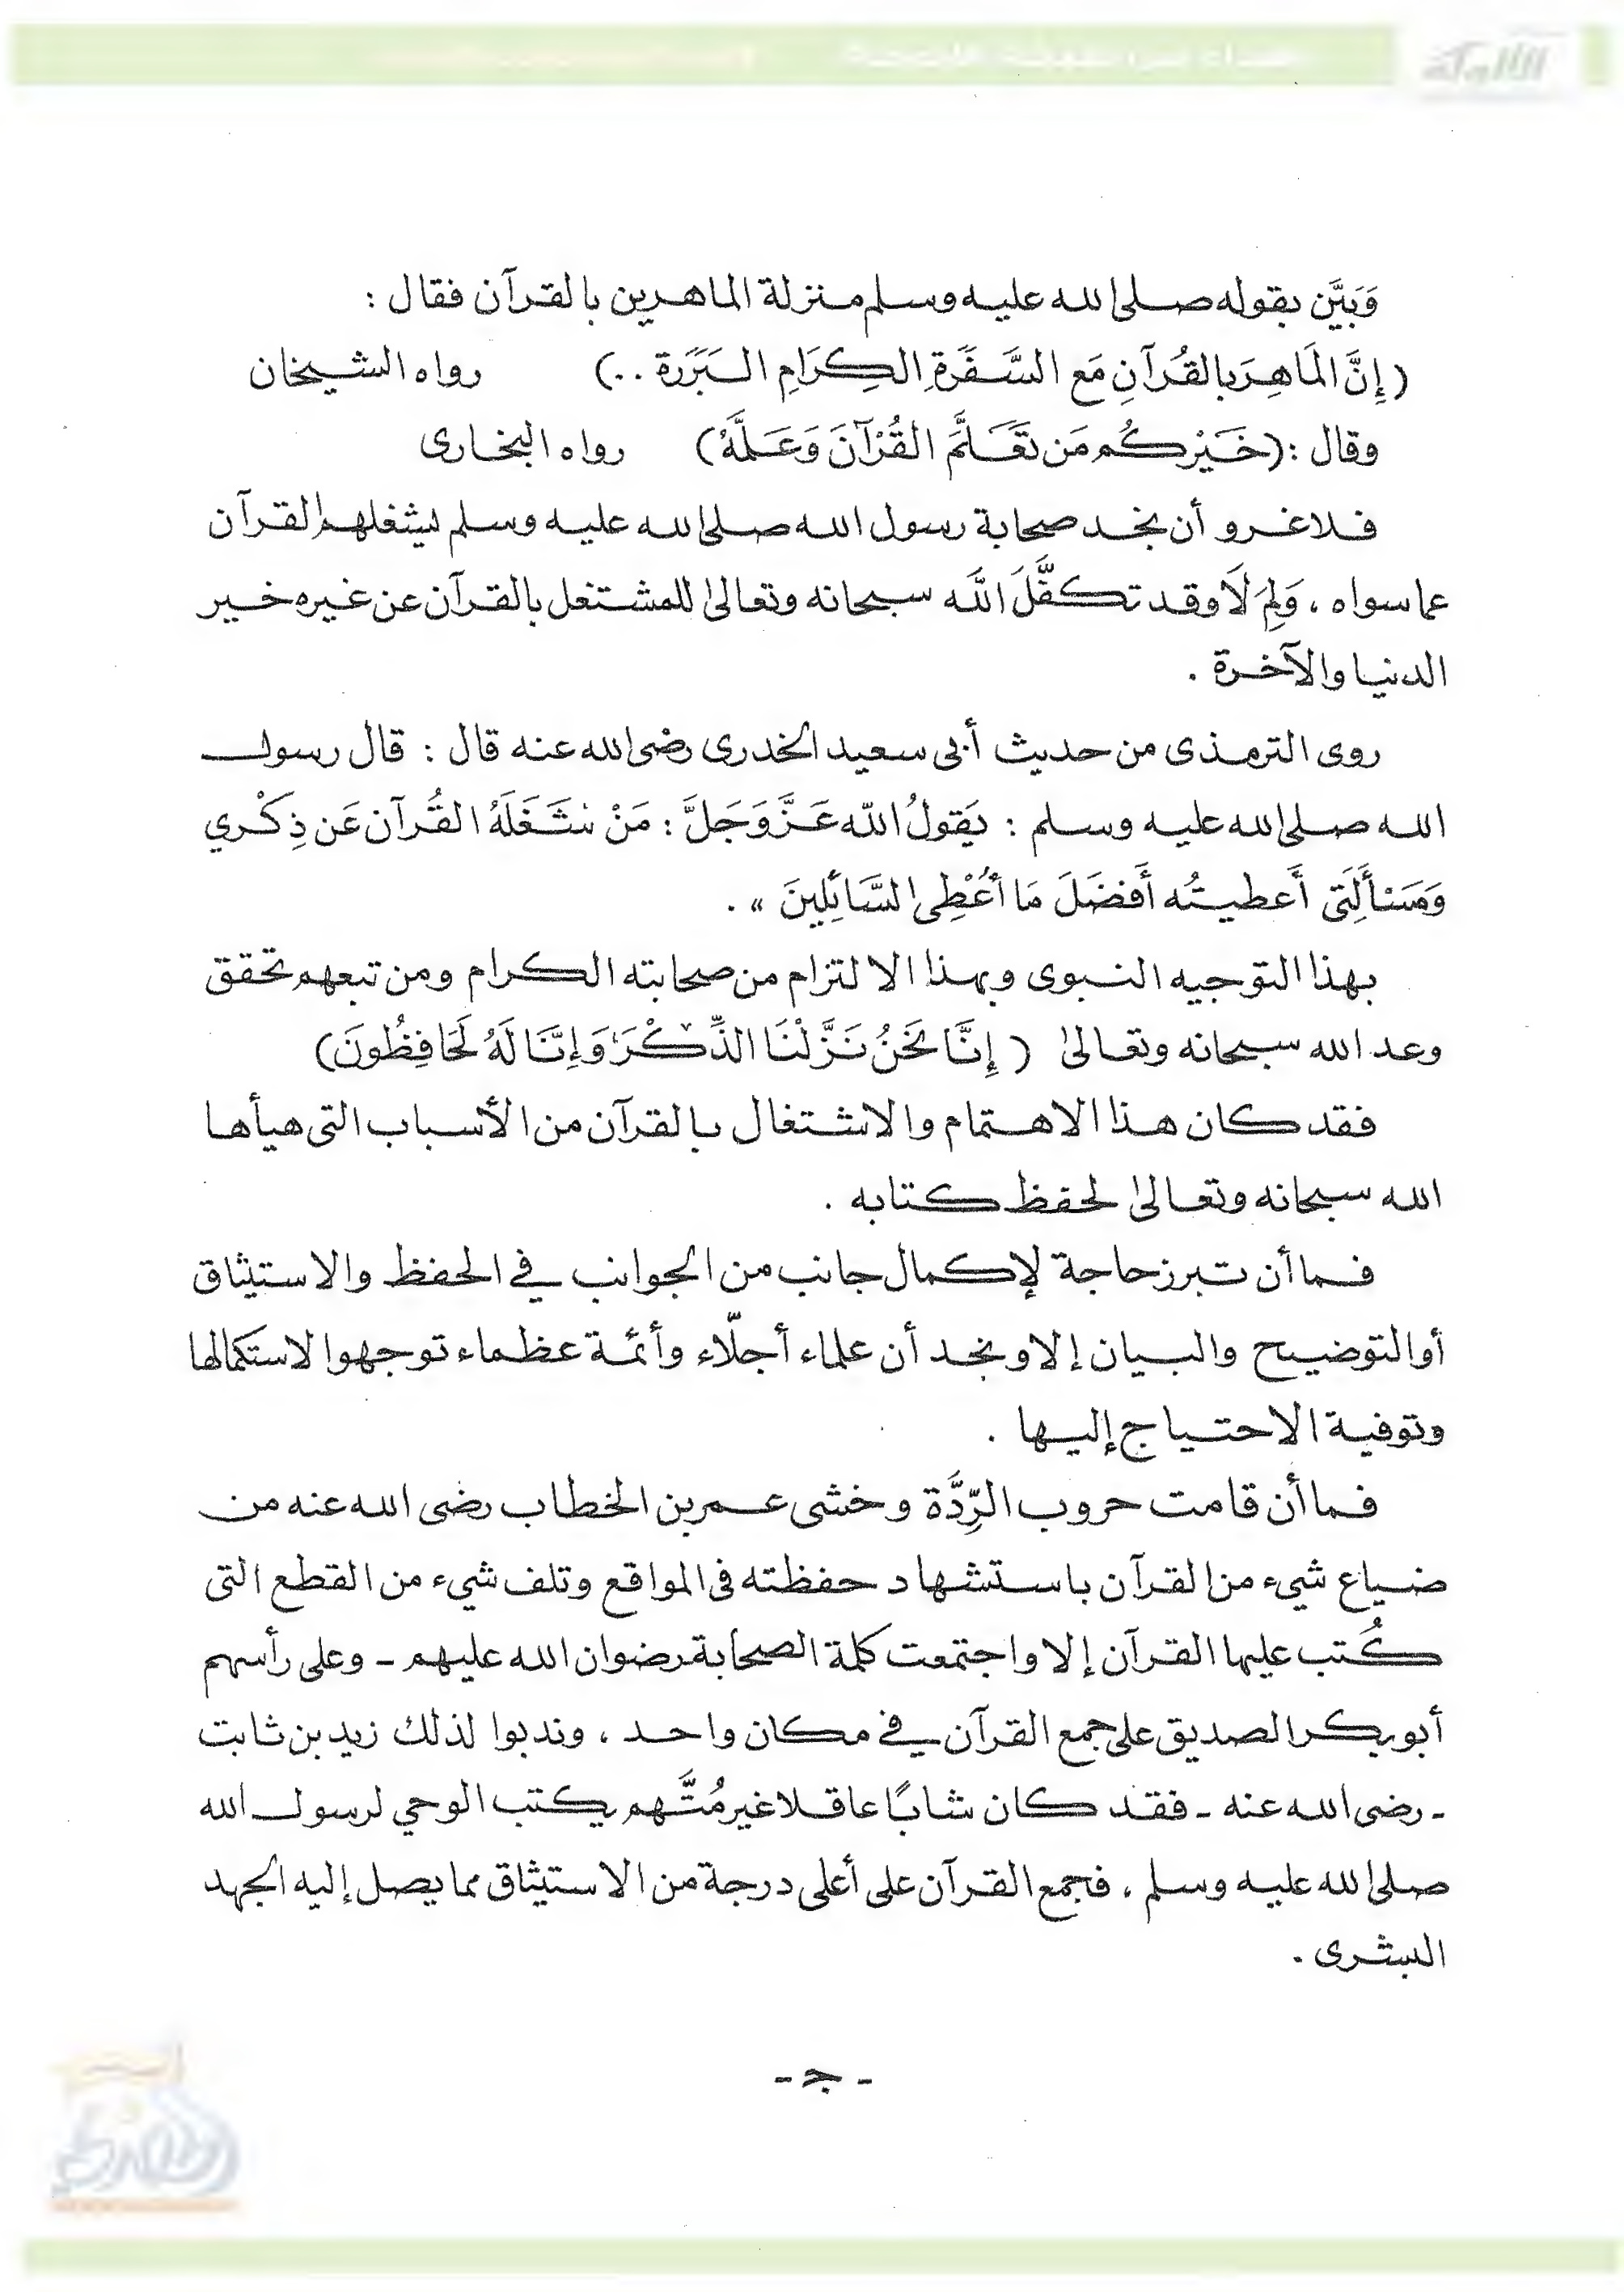 الألوكة
وَبَيَّن بقوله صلى الله عليه وسلم منزلة الماهرين بالقرآن فقال :
( إِنَّ المَاهِرَ بالقُرآنِ مَع السَّفَرَةِ الكِرَامِ البَرَرة ٠٠) رواه الشيخان
وقال :(خَيْركُم مَن تَعَلَّمَ القُرْآنَ وَعَلَّمَهُ) رواه البخارى
فلا غرو أن نجد صحابة رسول الله صلى الله عليه وسلم ليشغلهم القرآن
عما سواه ، وَلِمَ لَا وقد تكفَّلَ اللَّه سبحانه وتعالىٰ للمشتغل بالقرآن عن غيره خير
الدنيا والآخرة .
روى الترمذى من حديث أبى سعيد الخدرى رضى الله عنه قال : قال رسول
الله صلى الله عليه وسلم : يَقولُ اللّه عَزَّ وَجَلَّ : مَنْ شَغَلَهُ القُرآن عَن ذِكْري
وَمَسْأَلَتِى أَعطيتُه أَفضَلَ مَا أُعْطِى السَّائِلِينَ » .
بهذا التوجيه النبوى وبهذا الالتزام من صحابته الكرام ومن تبعهم تحقق
وعد الله سبحانه وتعالىٰ ( إِنَّا نَحْنُ نَزَّلْنَا الذِّكْرَ وَإِنَّا لَهُ لَحَافِظُونَ)
فقد كان هذا الاهتمام والاشتغال بالقرآن من الأسباب التى هيأها
الله سبحانه وتعالىٰ لحفظ كتابه .
فما أن تبرز حاجة لإكمال جانب من الجوانب في الحفظ والاستيثاق
أو التوضيح والبيان إلا ونجد أن علماء أجلّاء وأئمة عظماء توجهوا لاستكمالها
وتوفية الاحتياج إليها .
فما أن قامت حروب الرِّدَّة وخشى عمر بن الخطاب رضى الله عنه من
ضياع شيء من القرآن باستشهاد حفظته فى المواقع وتلف شيء من القطع التى
كُتب عليها القرآن إلا واجتمعت كلمة الصحابة رضوان الله عليهم - وعلى رأسهم
أبو بكر الصديق على جمع القرآن في مكان واحد ، وندبوا لذلك زيد بن ثابت
- رضى الله عنه - فقد كان شابًا عاقلا غير مُتَّهم يكتب الوحي لرسول الله
صلى الله عليه وسلم ، فجمع القرآن على أعلى درجة من الاستيثاق مما يصل إليه الجهد
البشرى .
- ج -